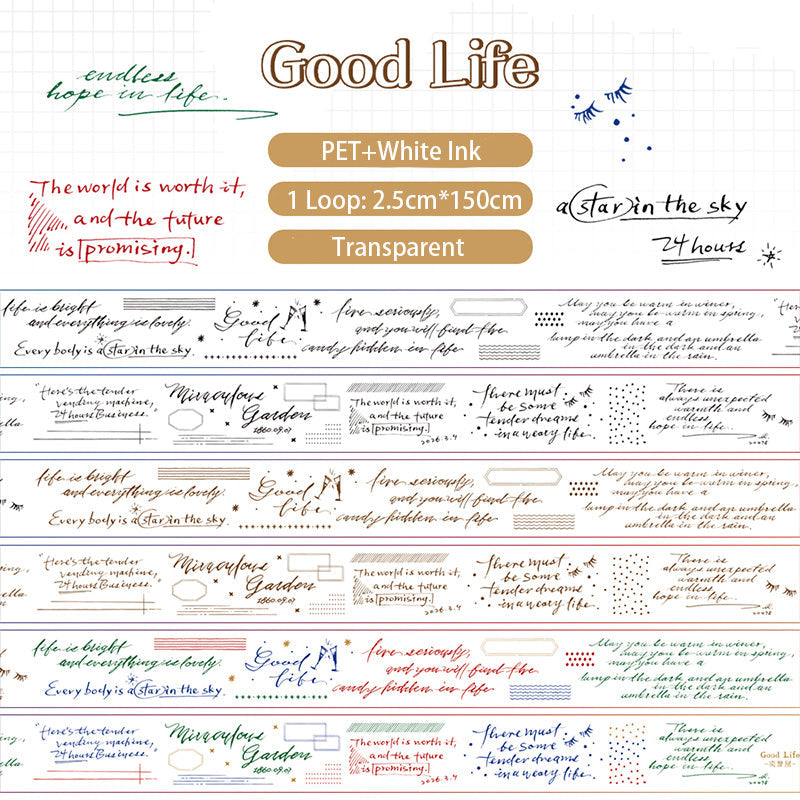 Good Life
endless
hope in life.
PET+White Ink
1 Loop: 2.5cm*150cm
Transparent
The world is worth it,
and the future
is promising.
a star in the sky
24 hours
life is bright
and everything is lovely.
Every body is a star in the sky.
Good
life
live seriously,
and you will find the
candy hidden in life
May you be warm in winer,
may you be warm in spring,
may you have a
lamp in the dark and an umbrella
in the dark and an
umbrella in the rain.
"Here's the tender
vending machine,
24 hours Business."
Miraculous
Garden
1860.09.07
The world is worth it,
and the future
is promising.
2026.3.4
There must
be some
tender dreams
in a weary life.
There is
always unexpected
warmth and
endless
hope in life.
life is bright
and everything is lovely.
Every body is a star in the sky.
Good
life.
live seriously,
and you will find the
candy hidden in life
May you be warm in winer,
may you be warm in spring,
may you have a
lamp in the dark and an umbrella
in the dark and an
umbrella in the rain.
"Here's the tender
vending machine,
24 hours Business."
Miraculous
Garden
1860.09.07
The world is worth it,
and the future
is promising.
2026.3.4
There must
be some
tender dreams
in a weary life.
There is
always unexpected
warmth and
endless
hope in life.
life is bright
and everything is lovely.
Every body is a star in the sky.
Good
life.
live seriously,
and you will find the
candy hidden in life
May you be warm in winer,
may you be warm in spring,
may you have a
lamp in the dark and an umbrella
in the dark and an
umbrella in the rain.
"Here's the tender
vending machine,
24 hours Business."
Miraculous
Garden
1860.09.07
The world is worth it,
and the future
is promising.
2026.3.4
There must
be some
tender dreams
in a weary life.
There is
always unexpected
warmth and
endless
hope in life.
Good Life